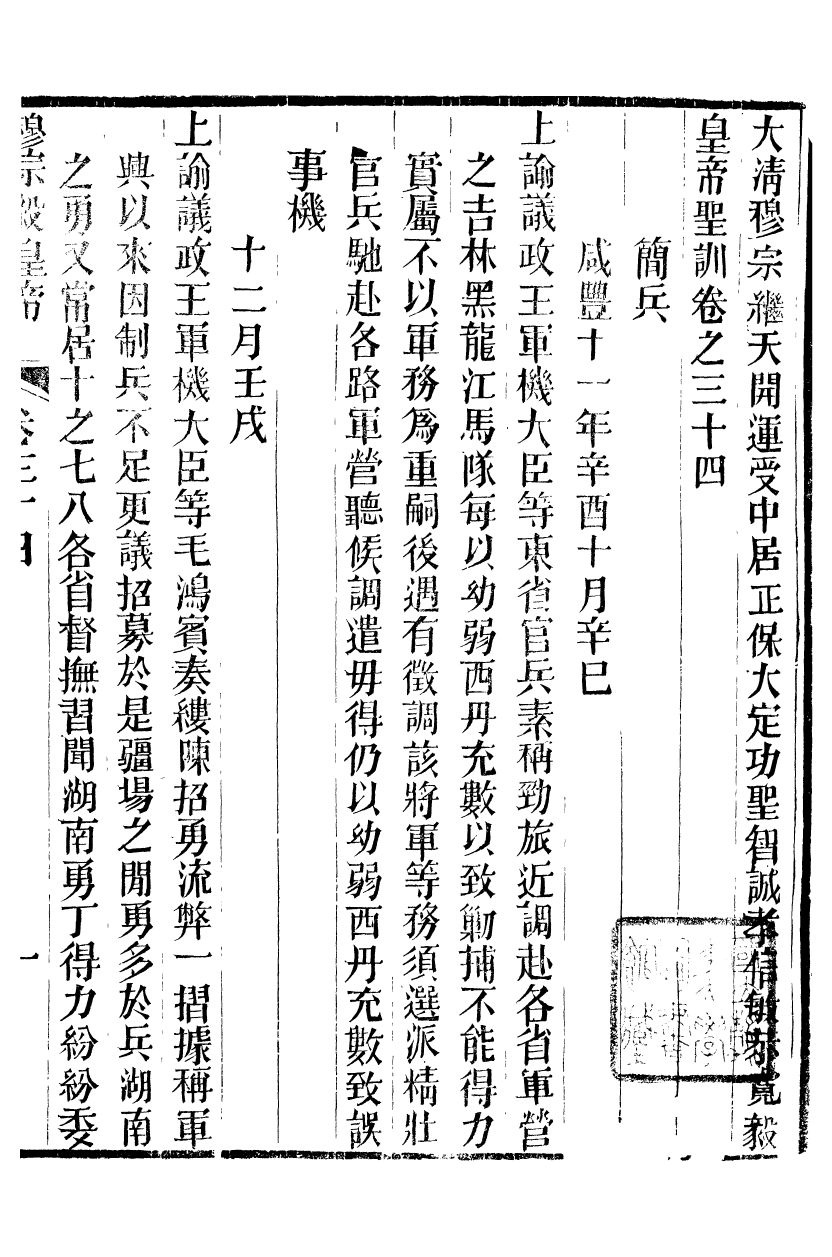 大淸穆宗繼天開運受中居正保大定功聖智誠孝信敏恭寬毅
皇帝聖訓卷之三十四
簡兵
咸豐十一年辛酉十月辛巳
上諭議政王軍機大臣等東省官兵素稱勁旅近調赴各省軍營
之吉林黑龍江馬隊每以幼弱西丹充數以致勦捕不能得力
實屬不以軍務爲重嗣後遇有徵調該將軍等務須選派精壯
官兵馳赴各路軍營聽候調遣毋得仍以幼弱西丹充數致誤
事機
十二月壬戌
上諭議政王軍機大臣等毛鴻賓奏縷陳招勇流弊一摺據稱軍
興以來因制兵不足更議招募於是疆場之閒勇多於兵湖南
之勇又常居十之七八各省督撫習聞湖南勇丁得力紛紛委
穆宗毅皇帝 卷三十四 一